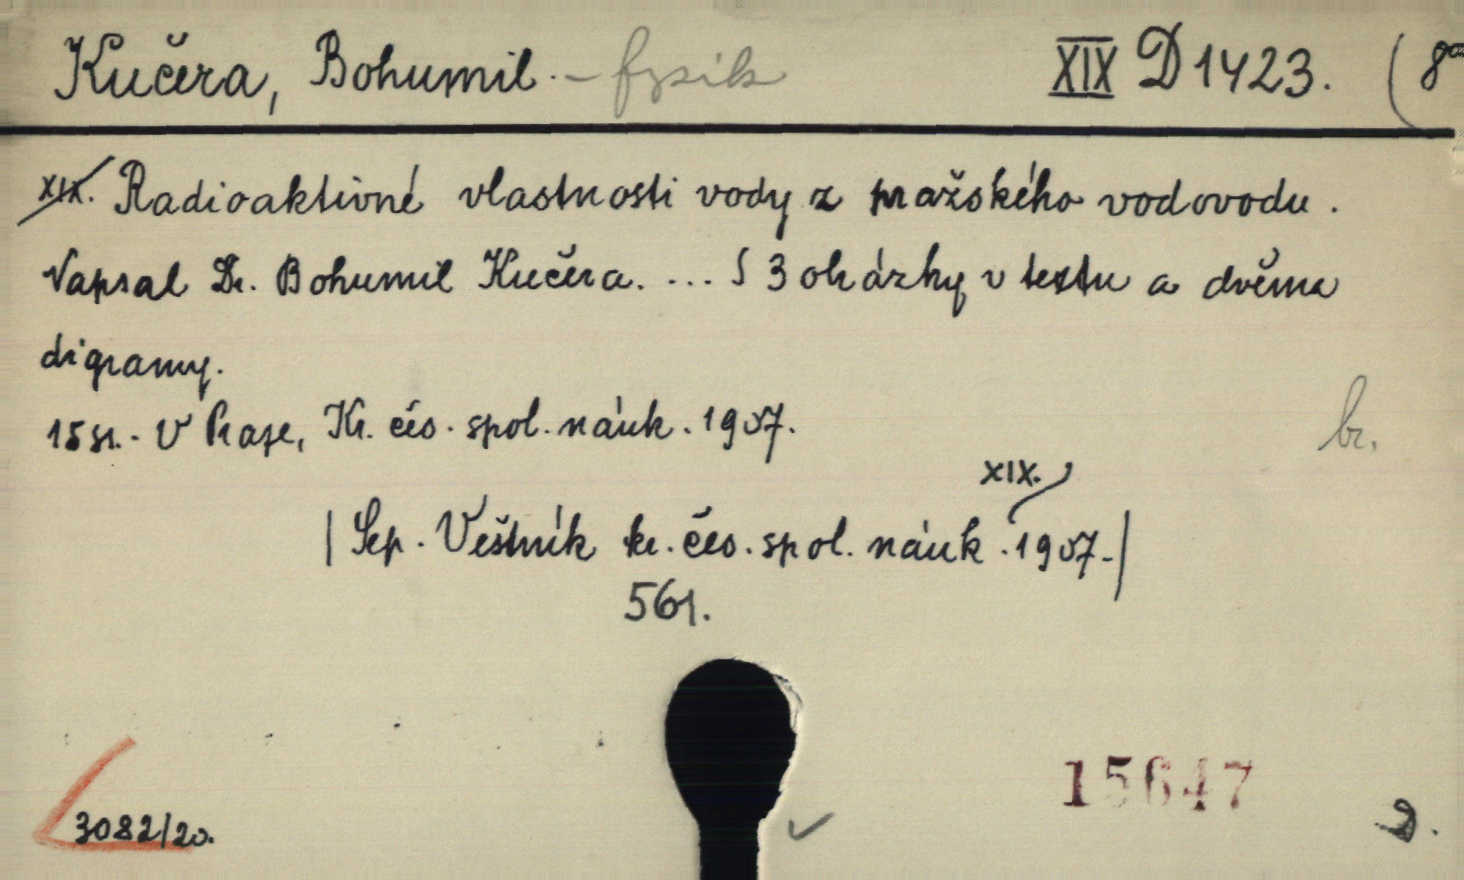 Kučera, Bohumil. - fysik XIX D 1423. (8°
XIX. Radioaktivné vlastnosti vody z pražského vodovodu.
Napsal Dr. Bohumil Kučera. ... S 3 obrázky v textu a dvěma
digramy.
15 str. - V Praze, Kr. čes. spol. náuk. 1907.
br.
XIX.
| Sep. Věstník kr. čes. spol. náuk. 1907. |
56r.
15647
3082/20.